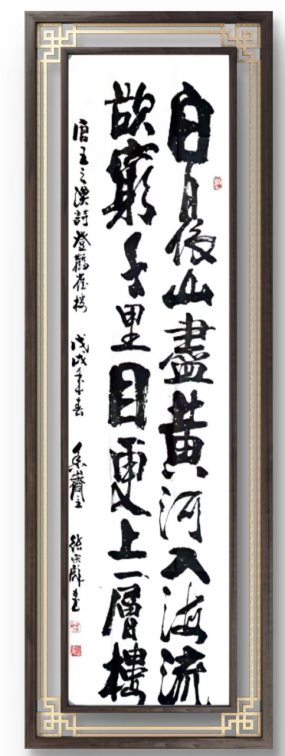 白日依山盡黃河入海流
欲窮千里目更上一層樓
唐王之渙詩登鸛雀樓 戊戌 春